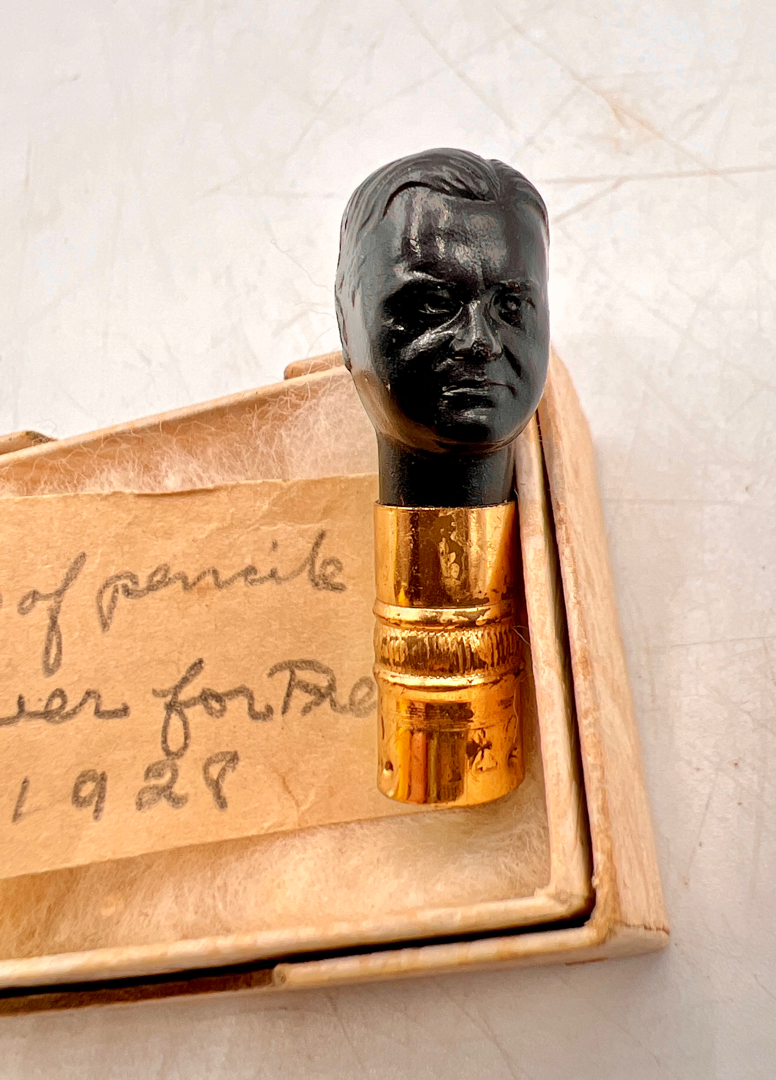 of pencils
ver for Pre
1928